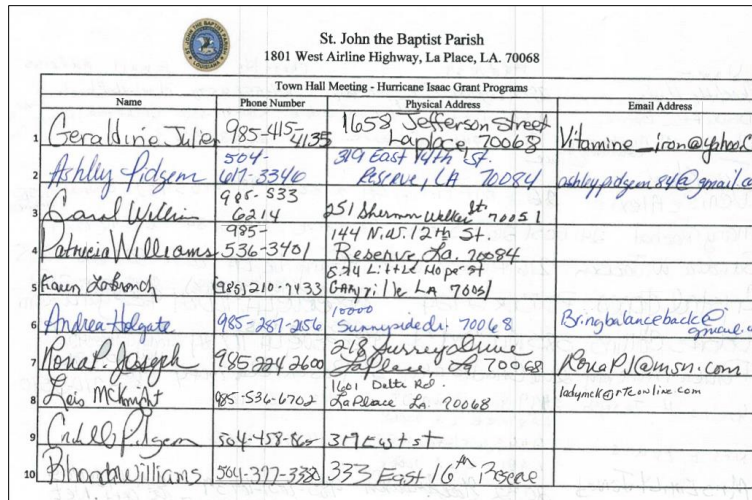 St. John the Baptist Parish
1801 West Airline Highway, La Place, LA. 70068
Town Hall Meeting - Hurricane Isaac Grant Programs
Name Phone Number Physical Address Email Address
1 Geraldine Julien 985-415-4135 1658 Jefferson Street Laplace, 70068 Vitamine_iron@yahoo.C
2 Ashley Pidgeon 504-617-3346 319 East 14th St. Reserve, LA 70084
3 Carol 985-533 6214 251 Sherman Walker St. 70051
4 Patricia Williams 985-536-3401 144 N.W. 12th St. Reserve La. 70084
5 Karen LaBranch (985)210-7433 Little Hope St LA 70051
6 Andrea Holgate 985-287-2156 10000 Sunnyside dr. 70068 Bringbalanceback@gmail.c
7 Rona P. Joseph 985 224 2600 218 Surrey Drive LaPlace, La 70068 RonaPJ@msn.com
8 Lois McKnight 985-536-6702 1601 Delta Rd. LaPlace La. 70068 ladymck@rtconline.com
9 504-458-865 317 East st
10 Rhonda Williams 504-377-3338 333 East 16th Reserve